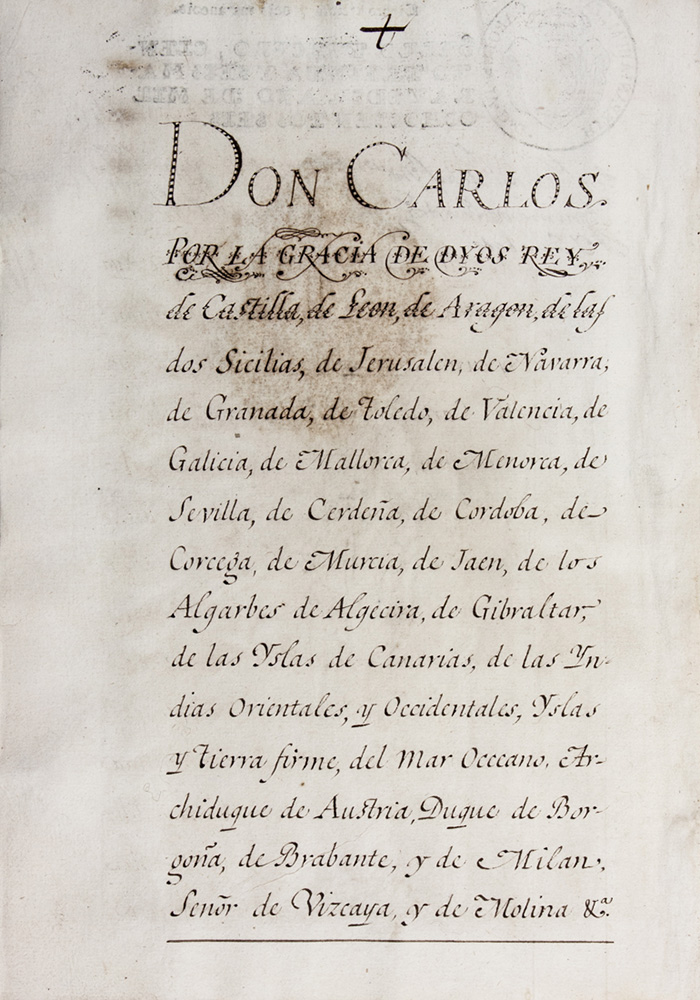 DON CARLOS.
POR LA GRACIA DE DYOS REY
de Castilla, de Leon, de Aragon, de las
dos Sicilias, de Jerusalen, de Navarra,
de Granada, de Toledo, de Valencia, de
Galicia, de Mallorca, de Menorca, de
Sevilla, de Cerdeña, de Cordoba, de
Corcega, de Murcia, de Jaen, de los
Algarbes de Algecira, de Gibraltar,
de las Yslas de Canarias, de las Yn-
dias Orientales, y Occidentales, Yslas
y tierra firme, del Mar Occeano, Ar-
chiduque de Austria, Duque de Bor-
goña, de Brabante, y de Milan,
Señor de Vizcaya, y de Molina &a.